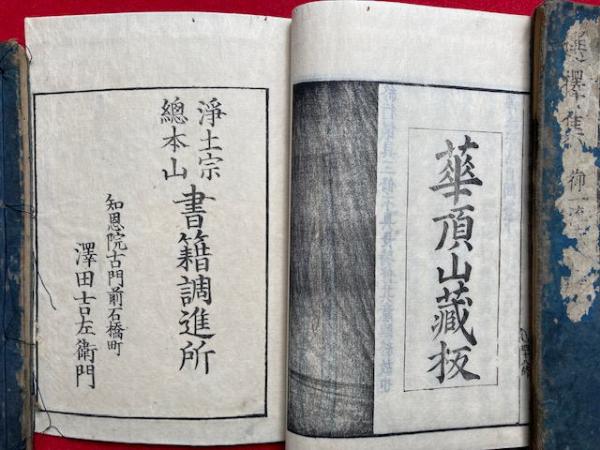 華頂山藏板
淨土宗
總本山
書籍調進所
知恩院古門前石橋町
澤田吉左衛門
選擇集